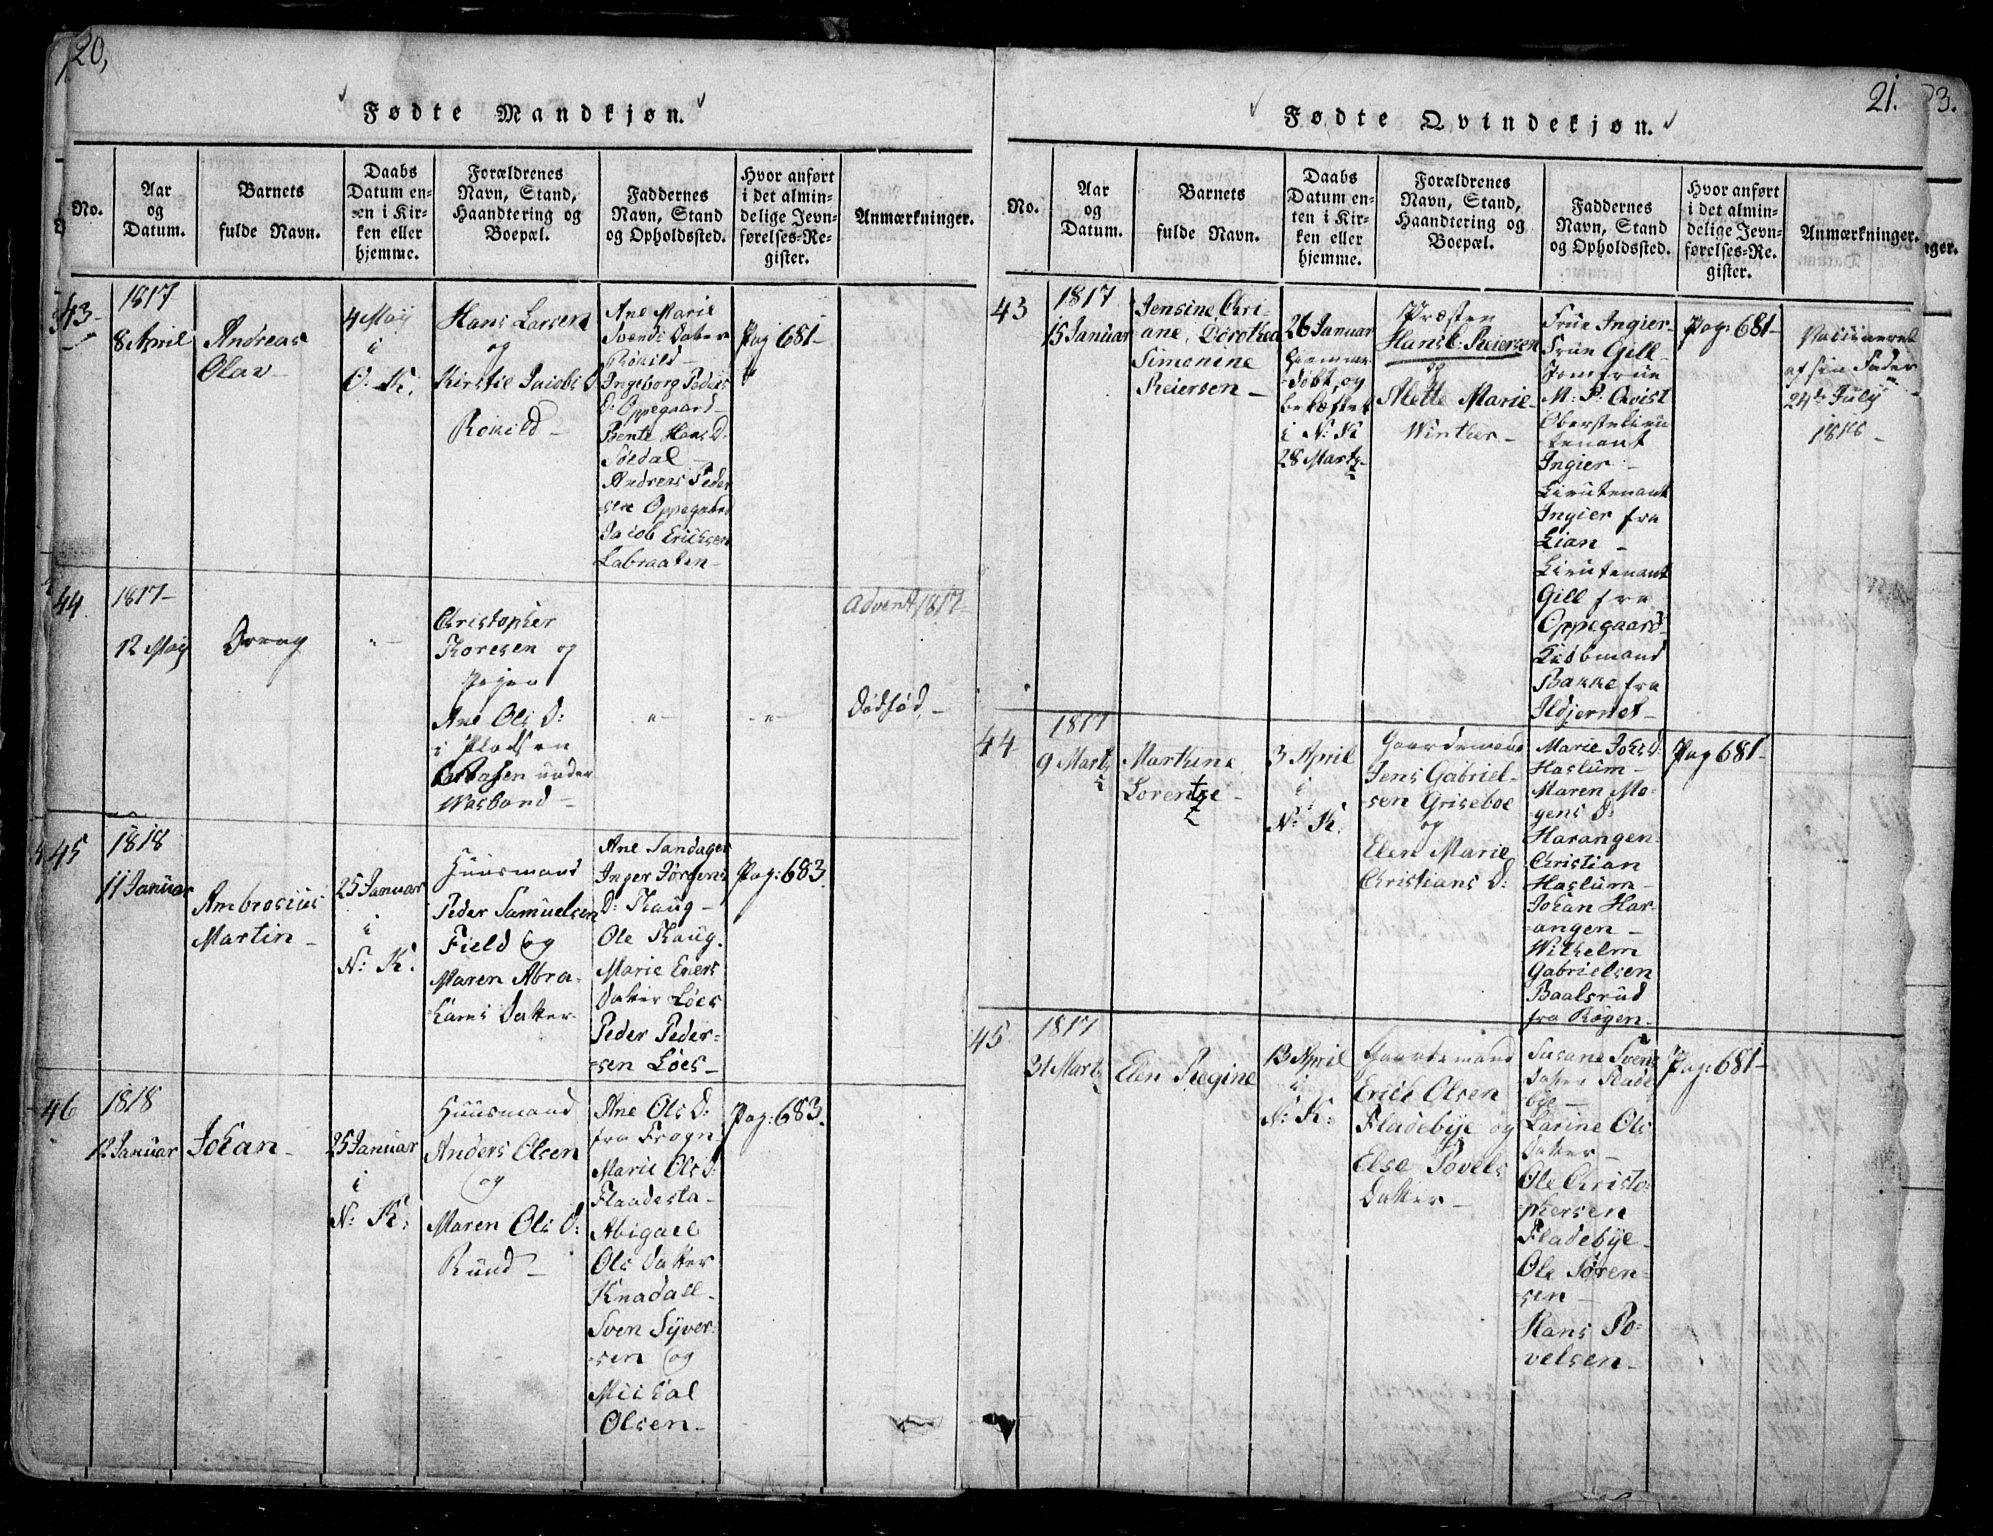 20,
Fødte Mandkjøn.
No.
Aar
og
Datum.
Barnets
fulde Navn.
Daabs
Datum en-
ten i Kir-
ken eller
hjemme.
Forældrenes
Navn, Stand,
Haandtering og
Boepæl.
Faddernes
Navn, Stand
og Opholdssted.
Hvor anført
i det almin-
delige Jevn-
førelses-Re-
gister.
Anmærkninger.
43-
1817
8 April
Andreas
Olav-
4 May
i
O: K:
Hans Larsen
og
Kirstie Jacobs D
Ane Marie
Svends Datter
Ingeborg Peders
D: Oppegaard-
Bente Hans D.
Andreas Peder
sen Oppegaard
Jacob Ericksen
Labraaten-
Pag 681-
44
1817-
12 May
Dreng
"-
Christopher
Toresen og
Pigen
Ane Ols D:
i Pladsen
under
"-
"-
Advent 1817-
Dødfød,-
45
1818
11 Januar
Ambrosius
Martin-
25 Januar
i
N: K:
Huusmand
Peder Samuelsen
Field og
Maren Abra-
hams Datter
Ane Sandager
Inger Jørgens
D: Skaug-
Ole Skaug.
Marie Eners
Datter Løes
Peder Peder-
sen Løes-
Pag: 683.
46
1818
12 Januar
Johan-
25 Januar
i
N: K:
Huusmand
Anders Olsen
og
Maren Ols D:
Rund-
Ane Ols D:
fra Frogn-
Marie Ols D:
Flaadesta-
Abigael
Ols Datter
Knadall-
Sven Syver-
sen og
Michal
Olsen-
Pag: 683.
21.
Fødte Qvindekjøn.
No.
Aar
og
Datum.
Barnets
fulde Navn.
Daabs
Datum en-
ten i Kir-
ken eller
hjemme.
Forældrenes
Navn, Stand,
Haandtering og
Boepæl.
Faddernes
Navn, Stand
og Opholdssted.
Hvor anført
i det almin-
delige Jevn-
førelses-Re-
gister.
Anmærkninger.
43
1817
15 Januar
Jensine Chri-
ane, Dorothea
Simonine
Reiersen-
26 Januar
hjemme-
døbt, og
i N: K
28 Marts-
Præsten
Hans L: Reiersen
og
Mette Marie-
Winther-
Frue Ingier-
Frue Gill-
Jomfrue
M: P: Qvist
Oberstelieu
tenant
Ingier-
Lieutenant
Ingier fra
Lian-
Lieutenant
Gill fra
Oppegaard-
Kiøbmand
Bakke fra
Ildjernet-
Pag: 681-
Vaccineret
af sin Fader
24de July
1818-
44
1817
9 Marts
Marthine
Lorentze-
3 April
i
N: K.
Gaardmand
Jens Gabriel-
sen Griseboe
og
Elen Marie
Christians D:
Marie Johs D:
Haslum-
Maren Mo-
gens D:
Harangen-
Christian
Haslum-
Johan Har-
angen-
Wilhelm
Gabrielsen
Baalsrud
fra Røgen-
Pag 681-
45
1817
31 Marts
Elen Regine
13 April
i
N: K:
Gaardmand
Erich Olsen
Fladebye og
Else Povels
Datter-
Susane Svens
Datter Flade
bye-
Karine Ols
Datter-
Ole Christo-
phersen
Fladebye-
Ole Søren-
sen-
Hans Po-
velsen-
Pag: 681-